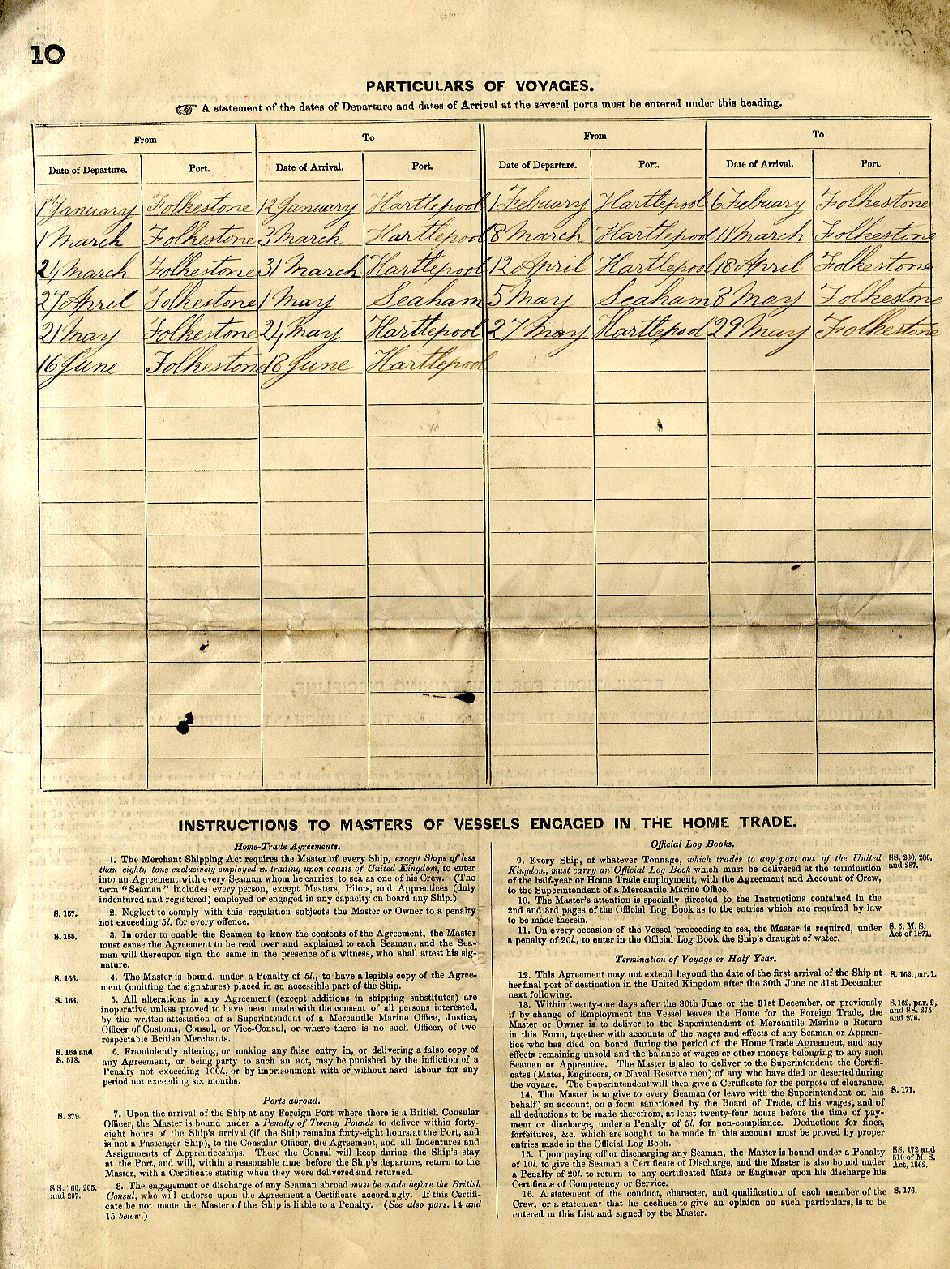 10
PARTICULARS OF VOYAGES.
A statement of the dates of Departure and dates of Arrival at the several ports must be entered under this heading.
From To From To
Date of Departure. Port. Date of Arrival. Port. Date of Departure. Port. Date of Arrival. Port.
1 January Folkestone 12 January Hartlepool 1 Febuary Hartlepool 6 Febuary Folkestone
1 March Folkestone 3 March Hartlepool 8 March Hartlepool 11 March Folkestone
24 March Folkestone 31 March Hartlepool 12 April Hartlepool 18 April Folkestone
27 April Folkestone 1 May Seaham 5 May Seaham 8 May Folkestone
21 May Folkestone 24 May Hartlepool 27 May Hartlepool 29 May Folkestone
16 June Folkestone 18 June Hartlepool
INSTRUCTIONS TO MASTERS OF VESSELS ENGAGED IN THE HOME TRADE.
Home-Trade Agreements.
1. The Merchant Shipping Act requires the Master of every Ship, except Ships of less
than eighty tons exclusively employed in trading upon coasts of United Kingdom, to enter
into an Agreement with every Seaman whom he carries to sea as one of his Crew. (The
term "Seaman" includes every person, except Masters, Pilots, and Apprentices (duly
indentured and registered) employed or engaged in any capacity on board any Ship.)
S. 157. 2. Neglect to comply with this regulation subjects the Master or Owner to a penalty
not exceeding 5l. for every offence.
3. In order to enable the Seamen to know the contents of the Agreement, the Master
must cause the Agreement to be read over and explained to each Seaman, and the Sea-
men will thereupon sign the same in the presence of a witness, who shall attest his sig-
nature.
4. The Master is bound, under a Penalty of 5l., to have a legible copy of the Agree-
ment (omitting the signatures) placed in an accessible part of the Ship.
S. 166. 5. All alterations in any Agreement (except additions in shipping substitutes) are
inoperative unless proved to have been made with the consent of all persons interested,
by the written attestation of a Superintendent of a Mercantile Marine Office, Justice,
Officer of Customs, Consul, or Vice-Consul, or where there is no such Officer, of two
respectable British Merchants.
6. Fraudulently altering, or making any false entry in, or delivering a false copy of
any Agreement, or being party to such an act, may be punished by the infliction of a
Penalty not exceeding 100l., or by imprisonment with or without hard labour for any
period not exceeding six months.
Ports abroad.
S. 279. 7. Upon the arrival of the Ship at any Foreign Port where there is a British Consular
Officer, the Master is bound under a Penalty of Twenty Pounds to deliver within forty-
eight hours of the Ship's arrival (if the Ship remains forty-eight hours at the Port, and
is not a Passenger Ship), to the Consular Officer, the Agreement, and all Indentures and
Assignments of Apprenticeships. These the Consul will keep during the Ship's stay
at the Port, and will, within a reasonable time before the Ship's departure, return to the
Master, with a Certificate stating when they were delivered and returned.
8. The engagement or discharge of any Seaman abroad must be made before the British
Consul, who will endorse upon the Agreement a Certificate accordingly. If this Certifi-
cate be not made the Master of the Ship is liable to a Penalty. (See also pars. 14 and
15 hereof.)
Official Log Books.
9. Every Ship, of whatever Tonnage, which trades to any port out of the United
Kingdom, must carry an Official Log Book which must be delivered at the termination
of the half-year or Home Trade employment, with the Agreement and Account of Crew,
to the Superintendent of a Mercantile Marine Office.
10. The Master's attention is specially directed to the Instructions contained in the
2nd and 3rd pages of the Official Log Book as to the entries which are required by law
to be made therein.
11. On every occasion of the Vessel proceeding to sea, the Master is required, under
a penalty of 20l., to enter in the Official Log Book the Ship's draught of water.
Termination of Voyage or Half Year.
12. This Agreement may not extend beyond the date of the first arrival of the Ship at
her final port of destination in the United Kingdom after the 30th June or 31st December
next following.
13. Within twenty-one days after the 30th June or the 31st December, or previously
if by change of Employment the Vessel leaves the Home for the Foreign Trade, the
Master or Owner is to deliver to the Superintendent of Mercantile Marine a Return
in this Form, together with accounts of the wages and effects of any Seamen or Appren-
tice who has died on board during the period of the Home Trade Agreement, and any
effects remaining unsold and the balance of wages or other moneys belonging to any such
Seaman or Apprentice. The Master is also to deliver to the Superintendent the Certifi-
cates (Mates, Engineers, or Naval Reserve men) of any who have died or deserted during
the voyage. The Superintendent will then give a Certificate for the purpose of clearance.
14. The Master is to give to every Seaman (or leave with the Superintendent on his S. 171.
behalf) an account, on a form sanctioned by the Board of Trade, of his wages, and of
all deductions to be made therefrom, at least twenty-four hours before the time of pay-
ment or discharge, under a Penalty of 5l. for non-compliance. Deductions for fines,
forfeitures, &c. which are sought to be made in this account must be proved by proper
entries made in the Official Log Book.
15. Upon paying off or discharging any Seaman, the Master is bound under a Penalty
of 10l. to give the Seaman a Certificate of Discharge, and the Master is also bound under
a Penalty of 20l. to return to any certificated Mate or Engineer upon his discharge his
Certificate of Competency or Service.
16. A statement of the conduct, character, and qualification of each member of the
Crew, or a statement that he declines to give an opinion on such particulars, is to be
entered in this List and signed by the Master.